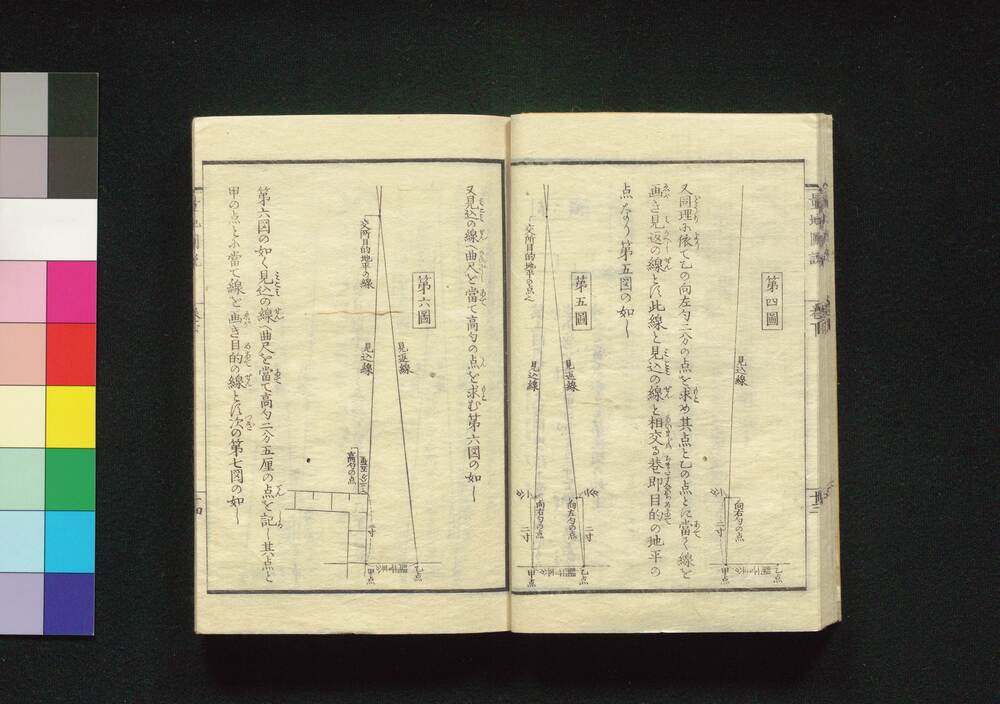 第四圖
見込線
向右勾の点
二寸
甲点
乙点
又同理に依て乙の向左勾二分の点を求め其点と乙の点とに當て線を
画き見返の線とす此線と見込の線と相交る巷即目的の地平の
点なり第五図の如し
第五圖
見返線
見込線
交所目的地平の点
向左勾の点
向右勾の点
二寸
二寸
乙点
甲点
又見込の線へ曲尺を當て高勾の点を求む第六図の如し
第六圖
交所目的地平の線
見返線
見込線
高勾の点
二寸
甲点
乙点
第六図の如く見込の線へ曲尺を當て高勾二分五厘の点を記し其点と
甲の点とに當て線を画き目的の線とす次の第七図の如し